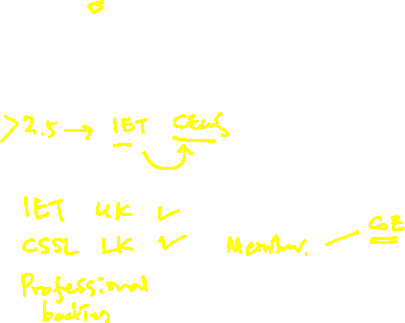 >2.5 → IET CEng
IET UK ✓
CSSL LK ✓ Member. — CoE
Professional
bodies